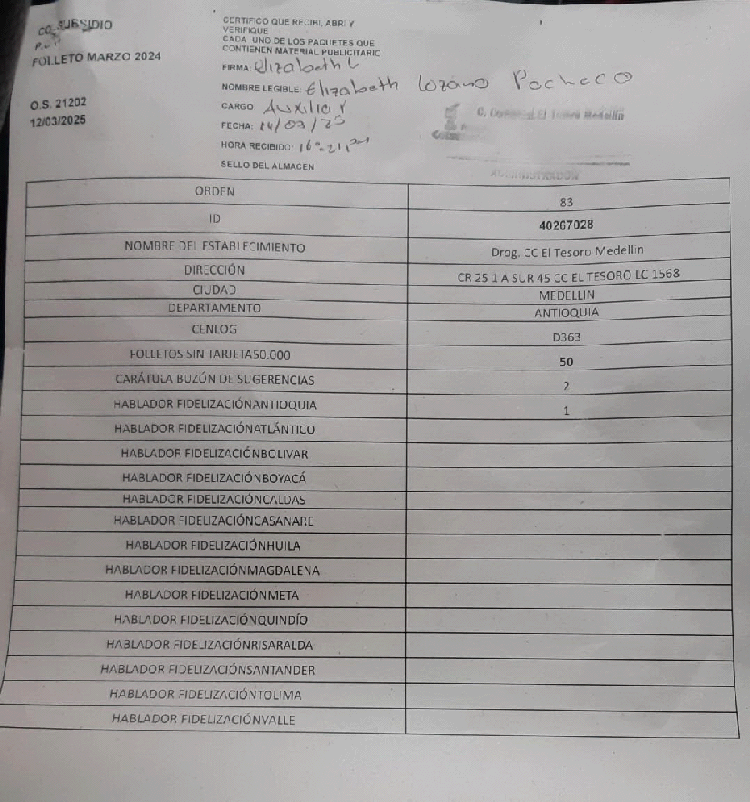 COLSUBSIDIO
FOLLETO MARZO 2024
O.S. 21202
12/03/2025
CERTIFICO QUE RECIBI, ABRI Y
VERIFIQUE
CADA UNO DE LOS PAQUETES QUE
CONTIENEN MATERIAL PUBLICITARIO
FIRMA: Elizabeth L
NOMBRE LEGIBLE: Elizabeth Lozano Pacheco
CARGO: Auxiliar
FECHA: 14/03/25
HORA RECIBIDO:
SELLO DEL ALMACEN
El Tesoro Medellin
ADMINISTRADOR
ORDEN 83
ID 40267028
NOMBRE DEL ESTABLECIMIENTO Drog. CC El Tesoro Medellin
DIRECCIÓN CR 25 1 A SUR 45 CC EL TESORO LC 1568
CIUDAD MEDELLIN
DEPARTAMENTO ANTIOQUIA
CENLOG D363
FOLLETOS SIN TARJETA50.000 50
CARÁTULA BUZÓN DE SUGERENCIAS 2
HABLADOR FIDELIZACIÓNANTIOQUIA 1
HABLADOR FIDELIZACIÓNATLÁNTICO
HABLADOR FIDELIZACIÓNBOLIVAR
HABLADOR FIDELIZACIÓNBOYACÁ
HABLADOR FIDELIZACIÓNCALDAS
HABLADOR FIDELIZACIÓNCASANARE
HABLADOR FIDELIZACIÓNHUILA
HABLADOR FIDELIZACIÓNMAGDALENA
HABLADOR FIDELIZACIÓNMETA
HABLADOR FIDELIZACIÓNQUINDÍO
HABLADOR FIDELIZACIÓNRISARALDA
HABLADOR FIDELIZACIÓNSANTANDER
HABLADOR FIDELIZACIÓNTOLIMA
HABLADOR FIDELIZACIÓNVALLE